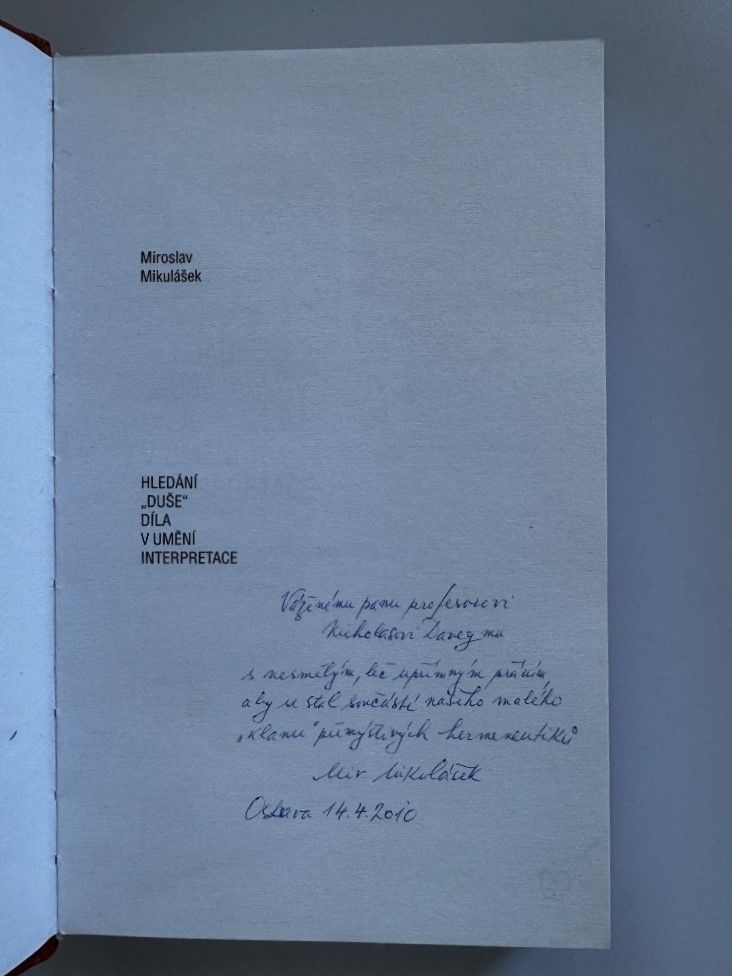 Miroslav
Mikulášek
HLEDÁNÍ
„DUŠE“
DÍLA
V UMĚNÍ
INTERPRETACE
Váženému panu profesorovi
Nicholasovi Daveymu
s nesmělým, leč upřímným přáním,
aby se stal součástí našeho malého
„klanu“ přemýšlivých hermeneutiků
Mir. Mikulášek
Ostrava 14.4.2010